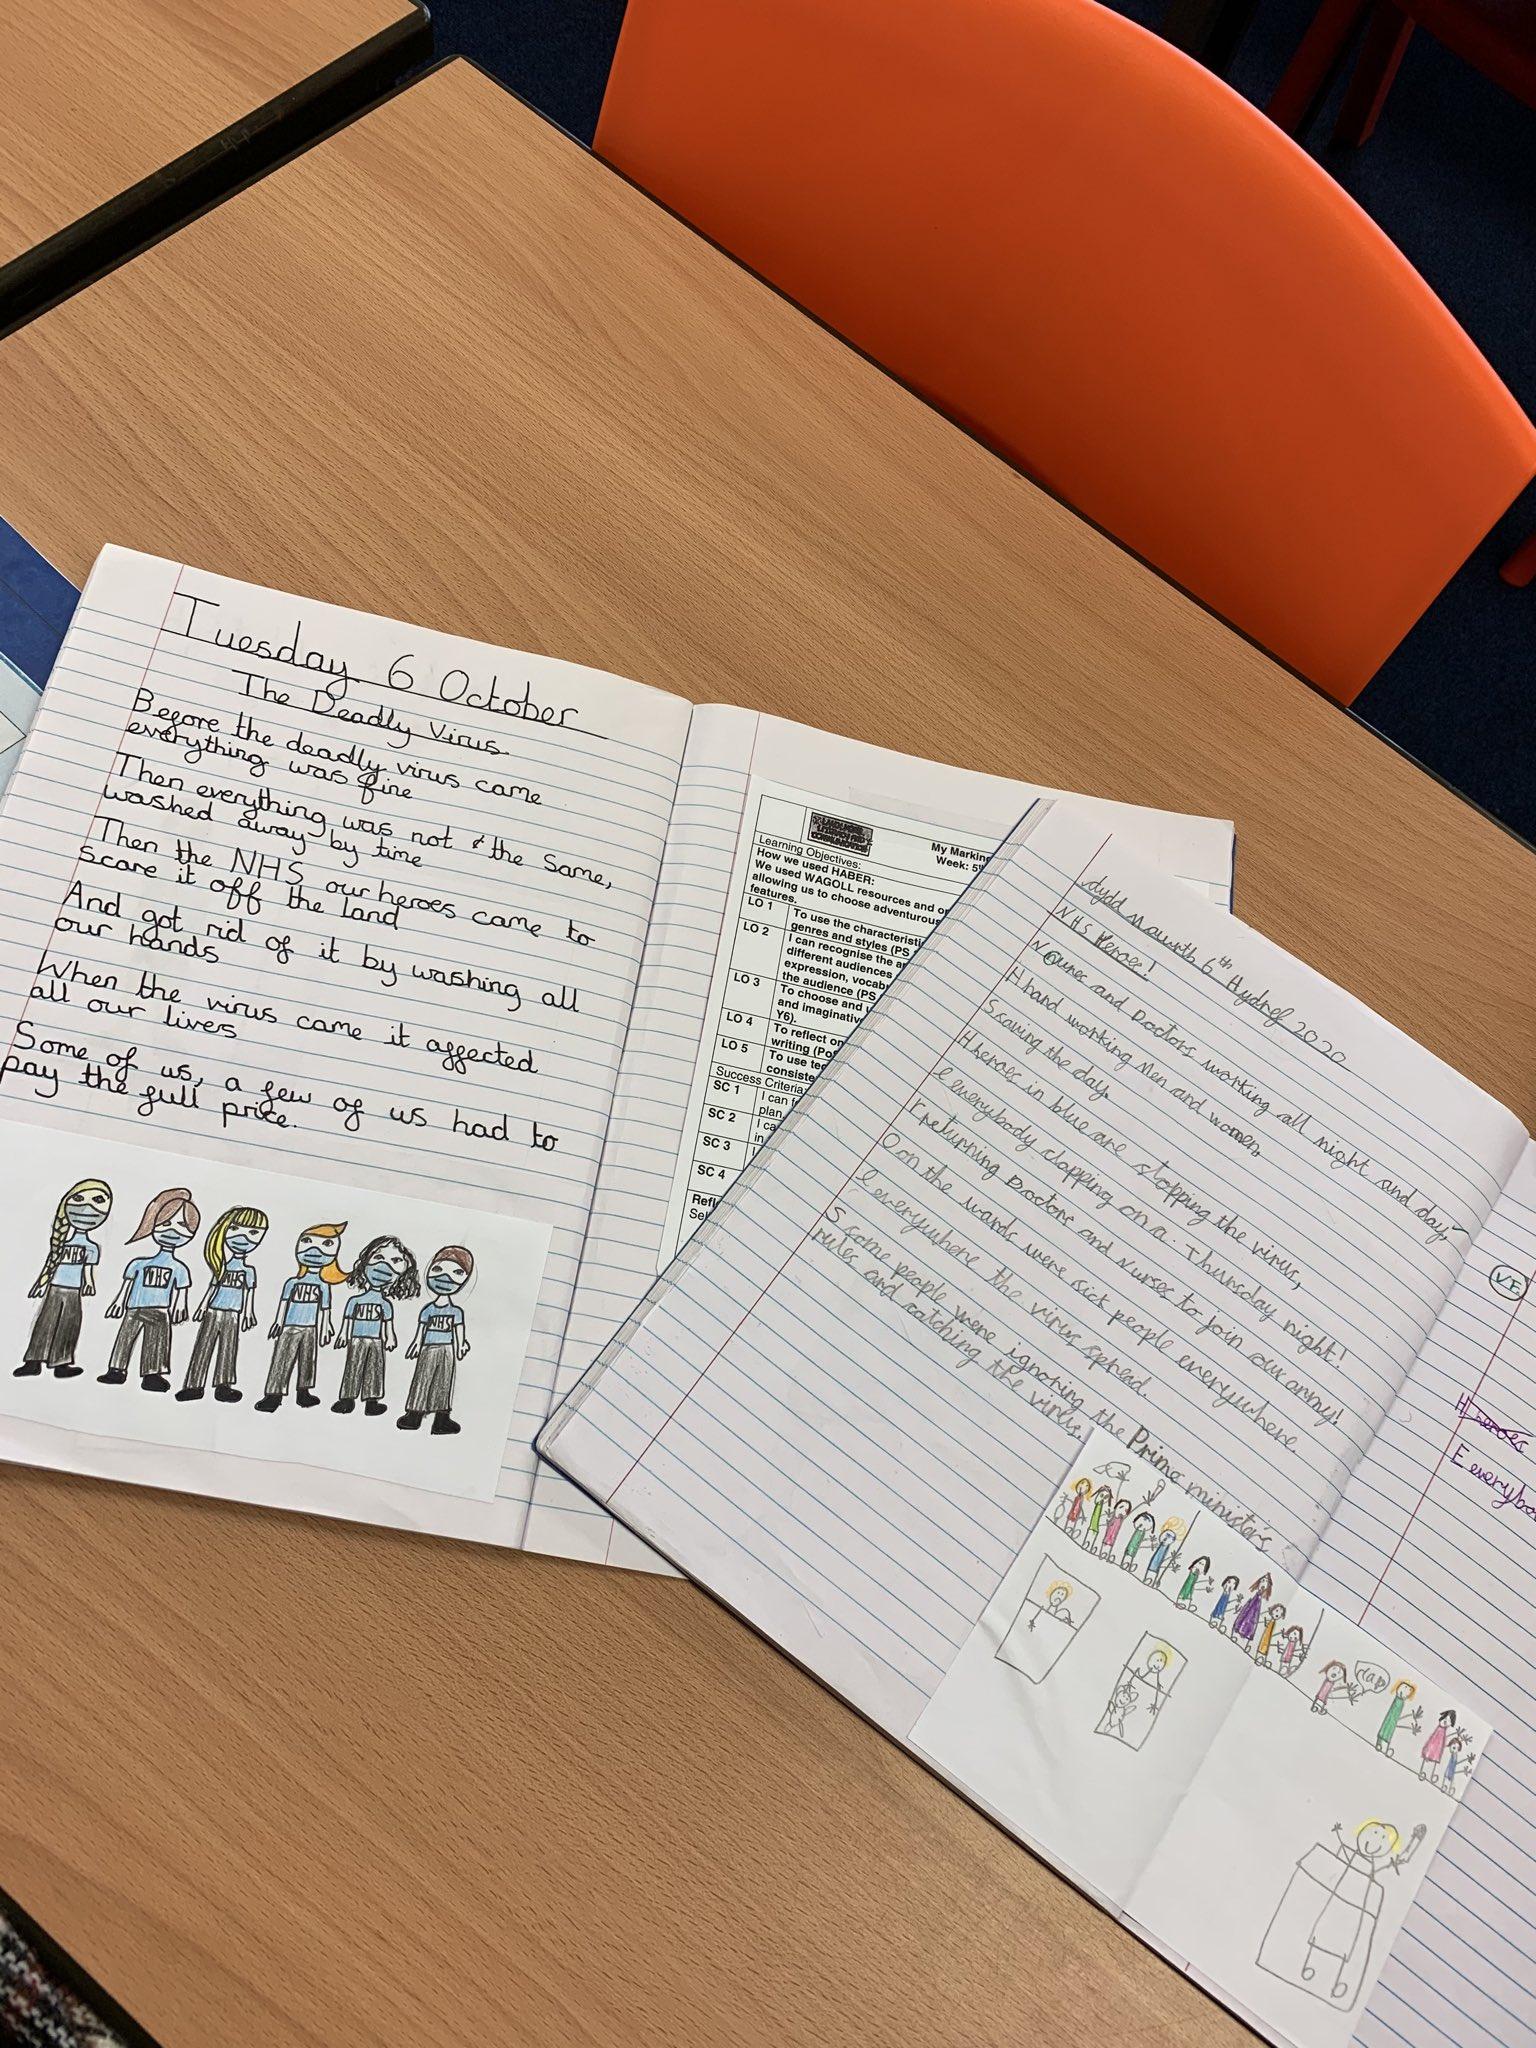 Tuesday 6 October
The Deadly Virus
Before the deadly virus came
everything was fine
Then everything was not the same,
washed away by time
Then the NHS our heroes came to
scare it off the land
And got rid of it by washing all
our hands
When the virus came it affected
all our lives
Some of us, a few of us had to
pay the full price.
NHS
NHS
NHS
NHS
NHS
NHS
My Marking
Week: 5
Learning Objectives:
How we used HABER:
We used WAGOLL resources and
allowing us to choose adventurous
features.
LO 1 To use the
genres and styles (PS
LO 2 I can recognise the
different audiences
expression,
the audience (PS
LO 3 To choose and
and imaginative
Y6).
LO 4 To reflect on
writing
LO 5 To use
Success Criteria:
SC 1 I can
plan.
SC 2
in
SC 3
SC 4
dydd mawrth 6th Hydref 2020
NHS Heroes!
and Doctors working all night and day,
H hard working Men and women,
S saving the day.
H heroes in blue are stopping the virus,
e everybody clapping on a Thursday night!
r returning Doctors and Nurses to join our army!
O on the wards were sick people everywhere.
e everywhere the virus spread.
S some people were ignoring the Prime minister's
rules and catching the virus.
clap
V.F.
H heroes
E